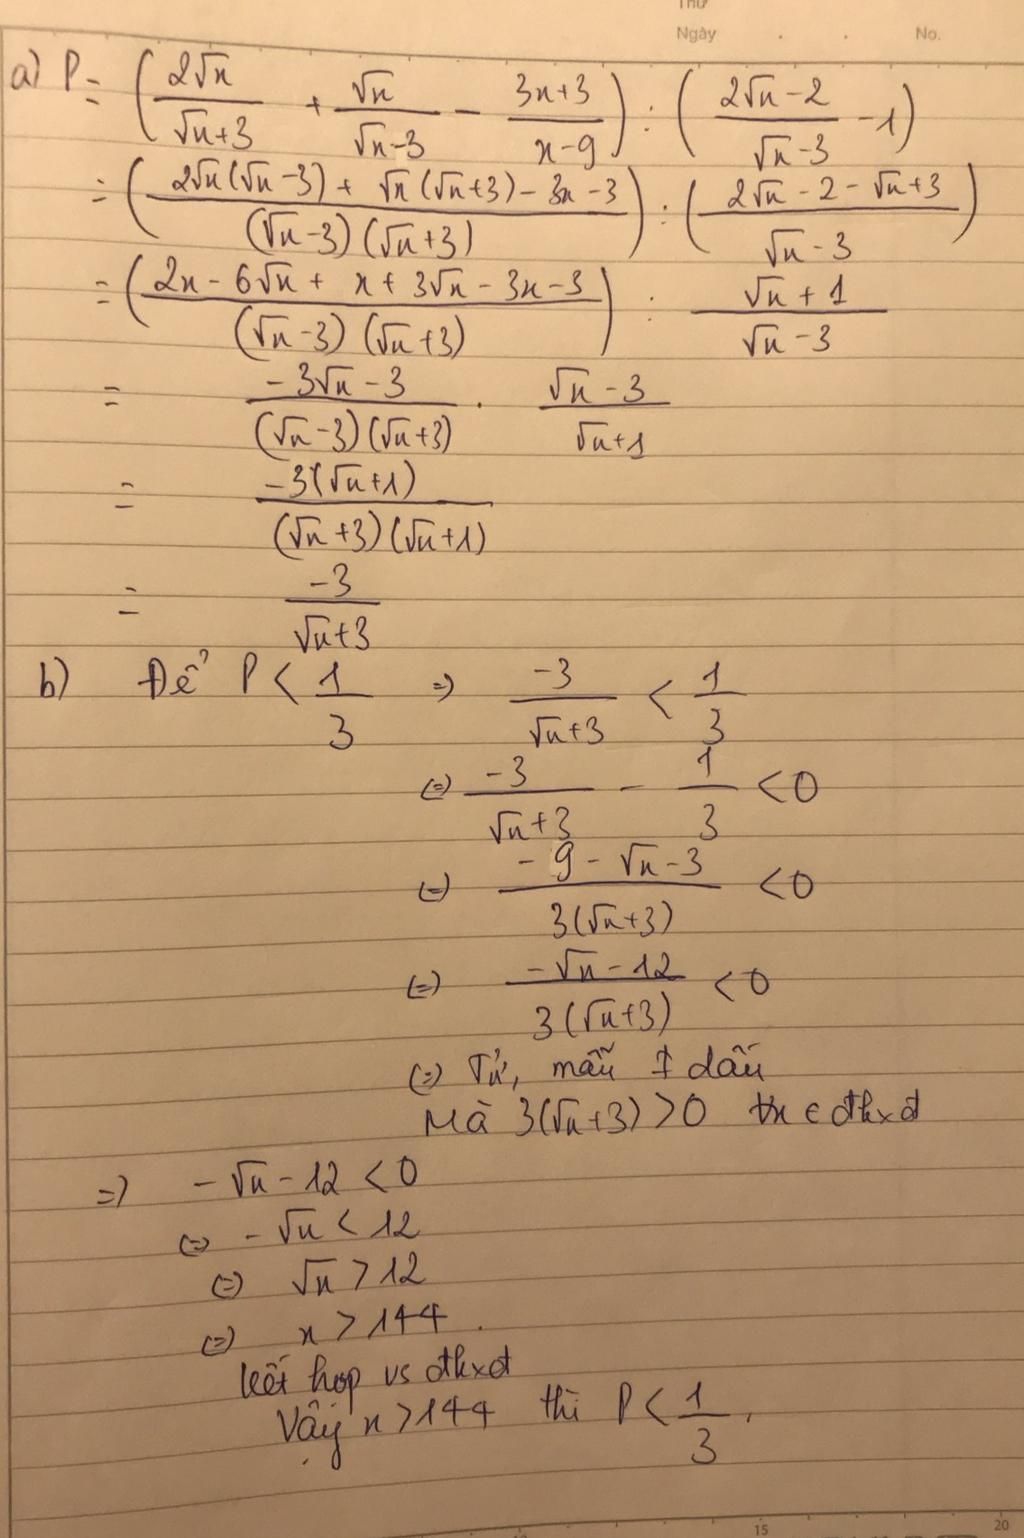 Thứ
Ngày . . No.
a) P = (2√x/(√x+3) + √x/(√x-3) - (3x+3)/(x-9)) : ((2√x-2)/(√x-3) - 1)
= ((2√x(√x-3) + √x(√x+3) - 3x - 3)/((√x-3)(√x+3))) : ((2√x - 2 - √x+3)/(√x-3))
= ((2x - 6√x + x + 3√x - 3x - 3)/((√x-3)(√x+3))) : (√x+1)/(√x-3)
= (-3√x - 3)/((√x-3)(√x+3)) . (√x-3)/(√x+1)
= -3(√x+1)/((√x+3)(√x+1))
= -3/(√x+3)
b) Để P < 1/3 => -3/(√x+3) < 1/3
(=) -3/(√x+3) - 1/3 < 0
(=) (-9 - √x - 3)/(3(√x+3)) < 0
(=) (-√x - 12)/(3(√x+3)) < 0
(=) Tử, mẫu ≠ dấu
Mà 3(√x+3) > 0 ∀x ∈ đkxđ
=) -√x - 12 < 0
(=) -√x < 12
(=) √x > 12
(=) x > 144.
Kết hợp vs đkxđ
Vậy x > 144 thì P < 1/3.
15 20